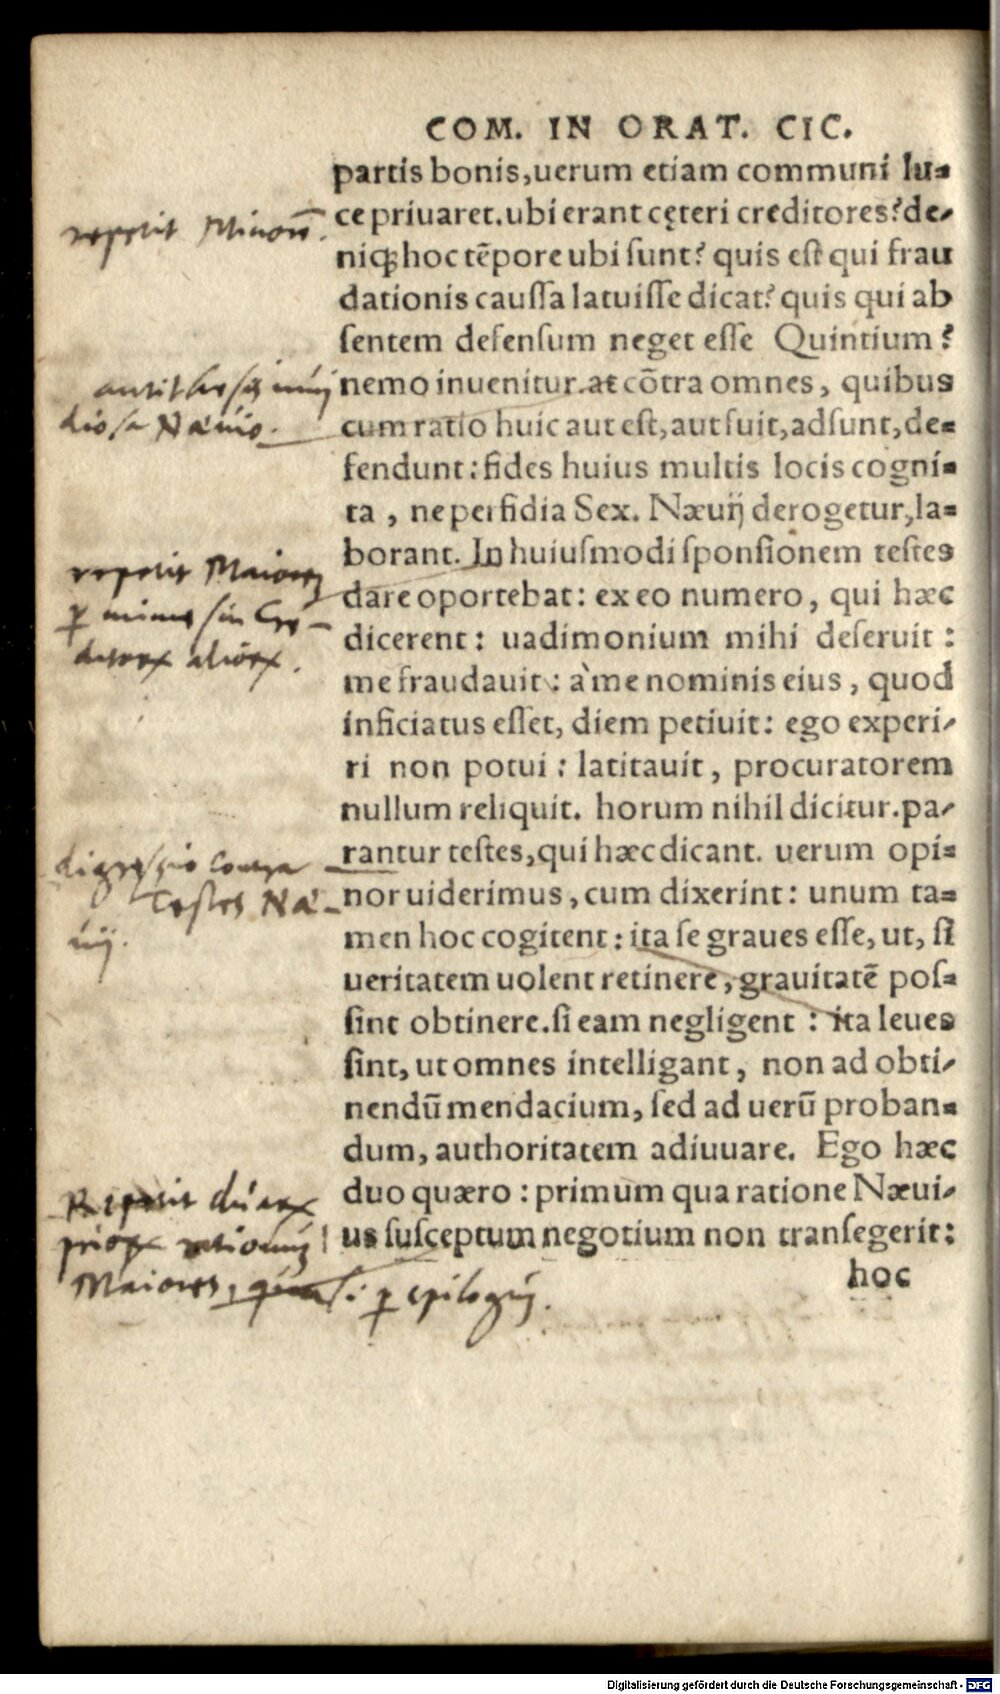 COM. IN ORAT. CIC.
partis bonis,uerum etiam communi lu-
ce priuaret.ubi erant cęteri creditores?de-
niqꝫ hoc tēpore ubi sunt? quis est qui frau
dationis caussa latuisse dicat? quis qui ab
sentem defensum neget esse Quintium?
nemo inuenitur.at cōtra omnes, quibus
cum ratio huic aut est,aut fuit,adsunt,de-
fendunt:fides huius multis locis cogni-
ta , ne perfidia Sex. Næuij derogetur,la-
borant. In huiusmodi sponsionem testes
dare oportebat: ex eo numero, qui hæc
dicerent: uadimonium mihi deseruit:
me fraudauit: à me nominis eius, quod
inficiatus esset, diem petiuit: ego experi-
ri non potui: latitauit, procuratorem
nullum reliquit. horum nihil dicitur.pa-
rantur testes,qui hæc dicant. uerum opi-
nor uiderimus,cum dixerint: unum ta-
men hoc cogitent:ita se graues esse, ut, si
ueritatem uolent retinere,grauitatē pos-
sint obtinere.si eam negligent: ita leues
sint, ut omnes intelligant, non ad obti-
nendū mendacium, sed ad uerū proban-
dum, authoritatem adiuuare. Ego hæc
duo quæro:primum qua ratione Næui-
us susceptum negotium non transegerit:
hoc
repetit Minorē.
diosa Næuio.
repetit Maiorem
digressio contra
testes Næ-
uij.
Repetit
Maiores, quasi ꝑ epilogū.
Digitalisierung gefördert durch die Deutsche Forschungsgemeinschaft - DFG